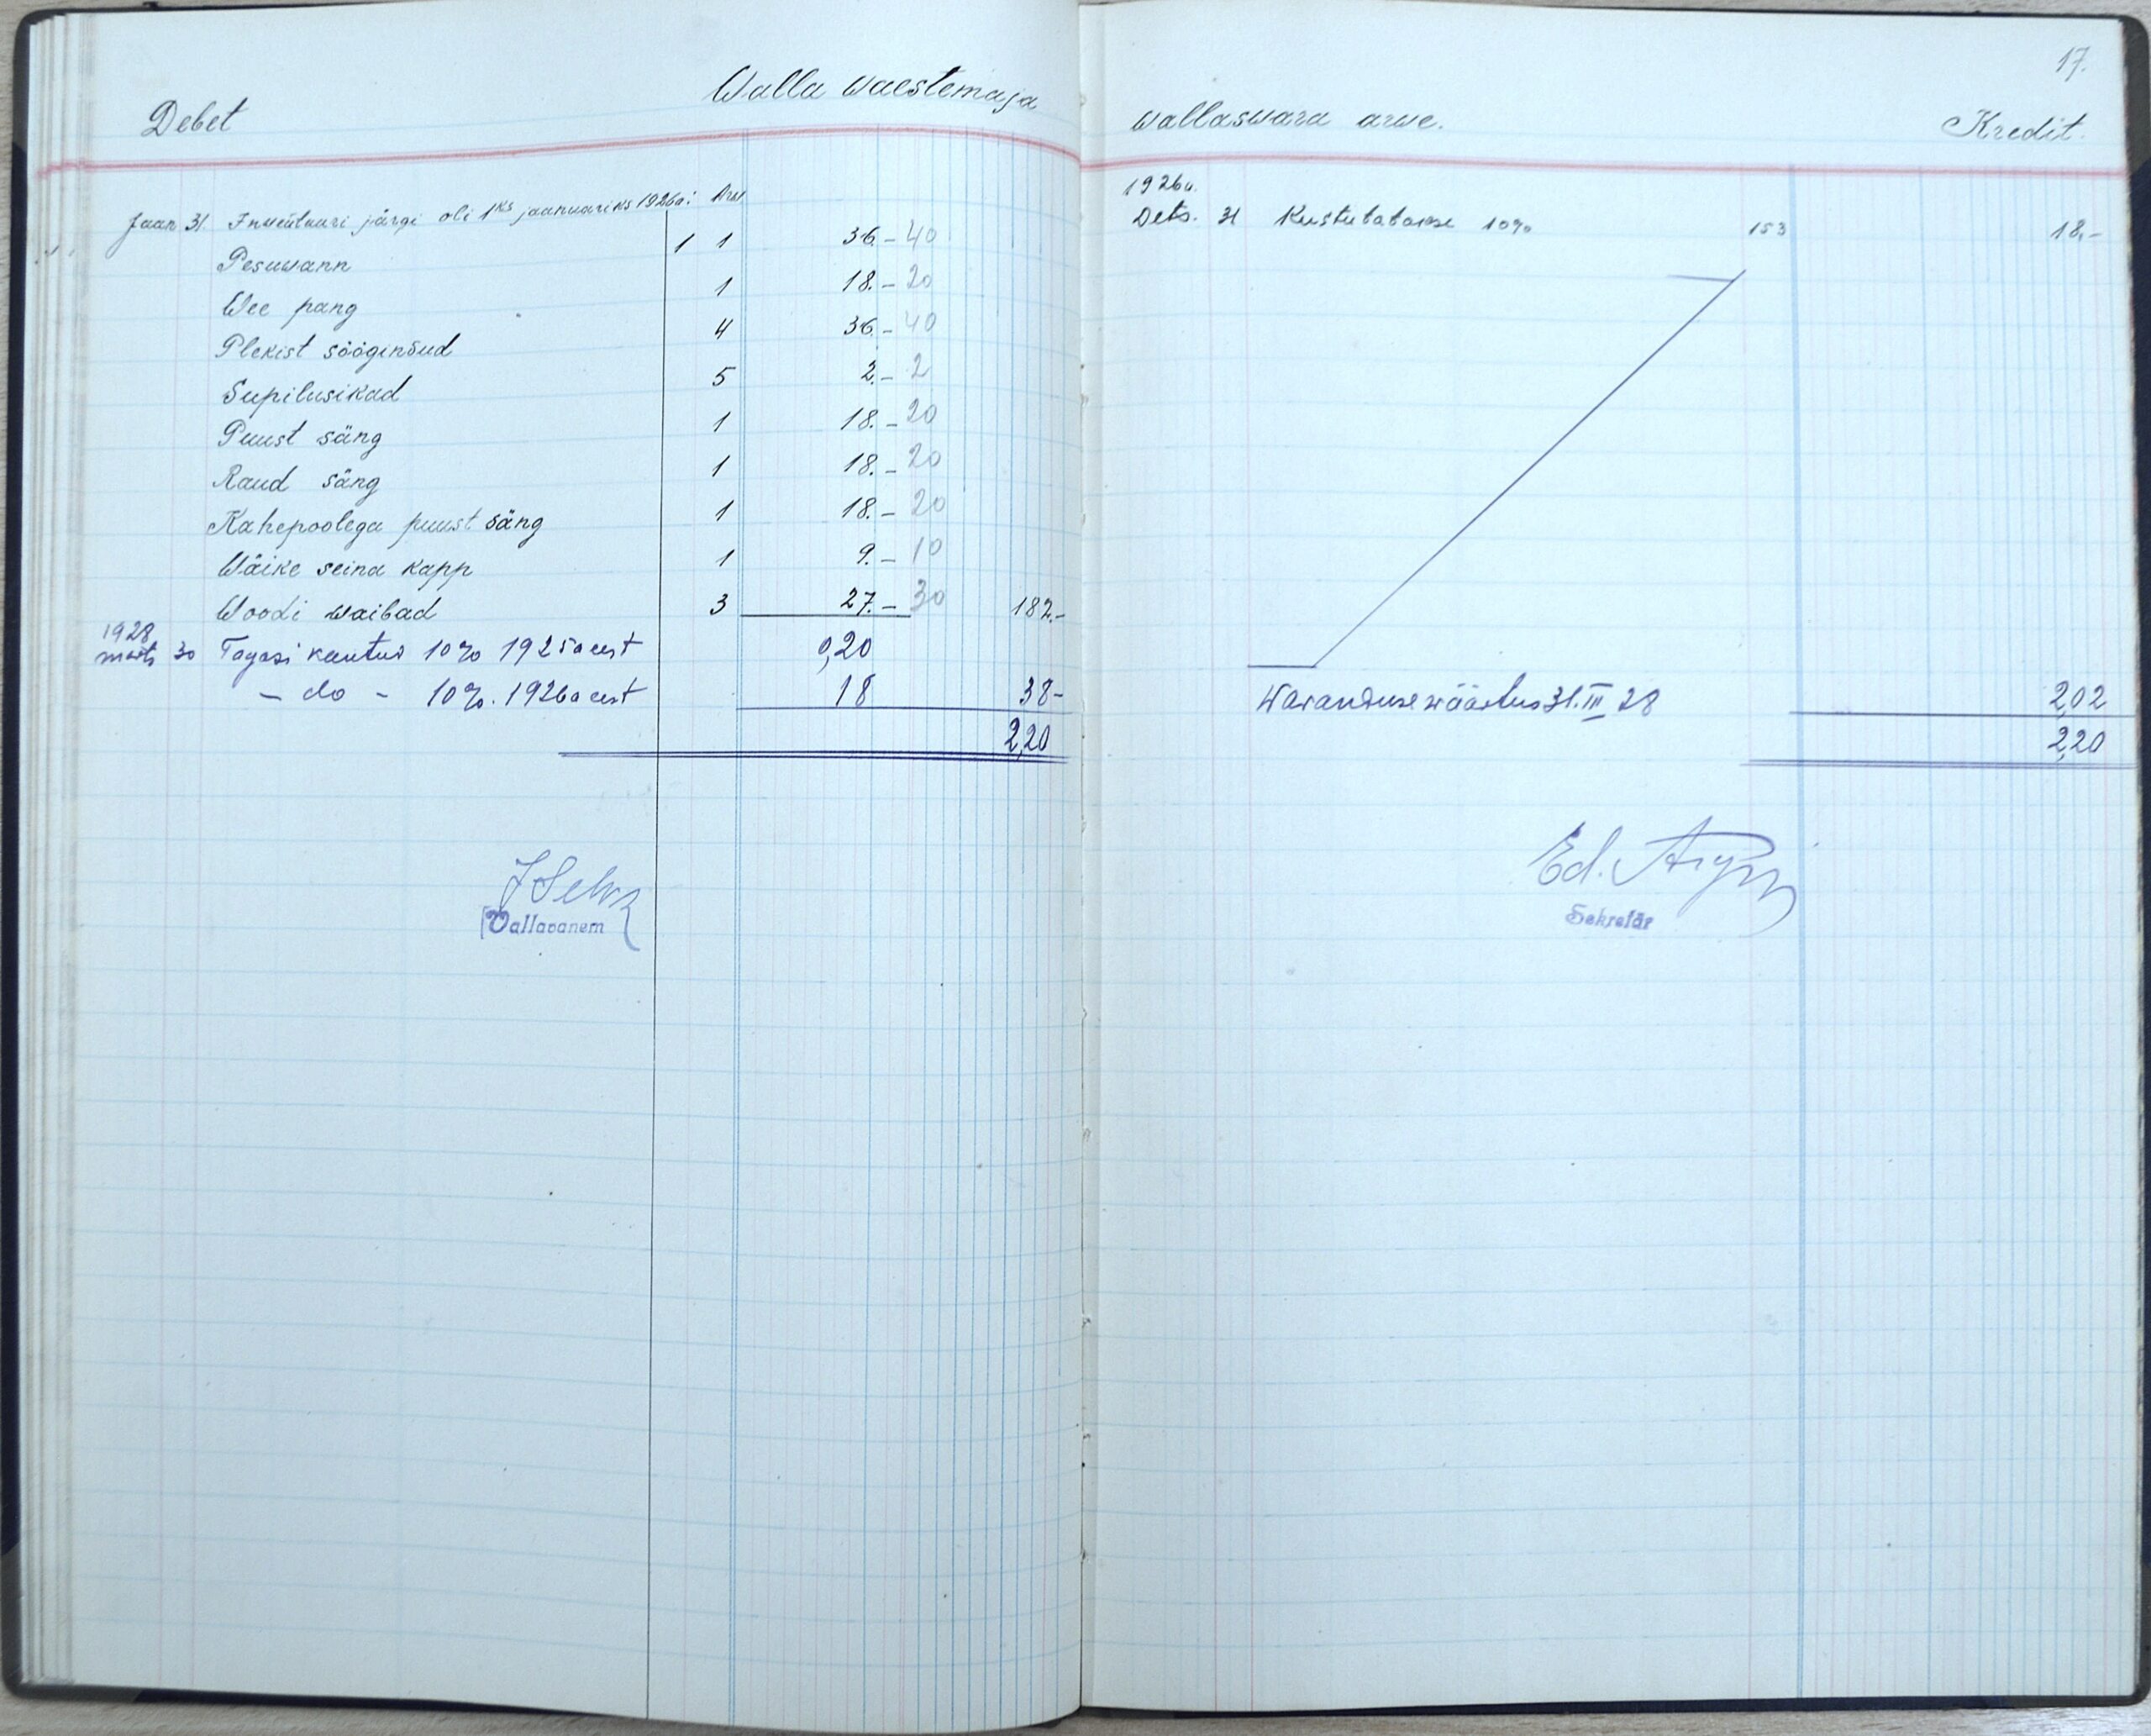 17.
Debet Walla waestemaja wallaswara arwe. Kredit.
Jaan. 31. Inwentuuri järgi oli 1ks jaanuariks 1926a: Arw
Pesuwann 1 1 36.- 40
Wee pang 1 18.- 20
Plekist sööginõud 4 36.- 40
Supilusikad 5 2.- 2
Puust säng 1 18.- 20
Raud säng 1 18.- 20
Kahepoolega puust säng 1 18.- 20
Wäike seina kapp 1 9.- 10
Woodi waibad 3 27.- 30 182.-
1928
märts 30 Tagasi kantud 10% 1925a eest 0,20
- do - 10%. 1926a eest 18 38-
2,20
Vallavanem
1926a.
Dets. 31 Kustutatakse 10% 153 18.-
Waranduse wäärtus 31.III 28 2,02
2,20
Ed.
Sekretär